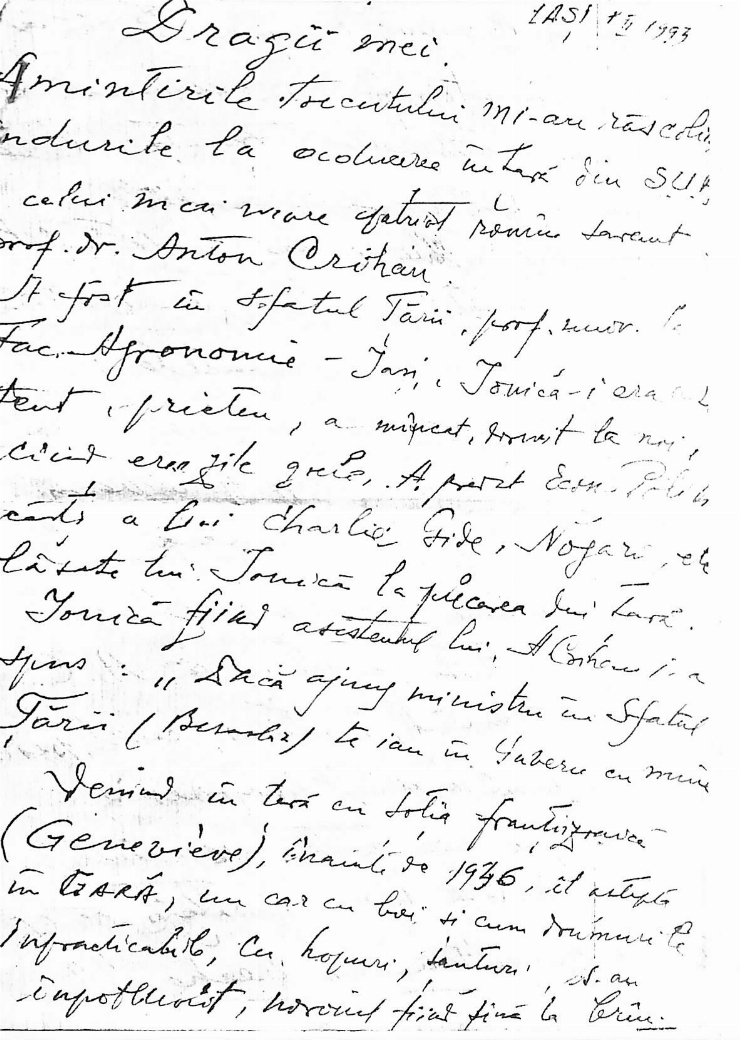 IAȘI 1993
Dragii mei.
Amintirile trecutului mi-au răscolit
ndurile la aducerea în țară din SUA,
celui mai mare patriot romîn savant
prof. dr. Anton Crihan.
A fost în Sfatul Țării, prof. univ. la
Fac. Agronomie - Iași, Ionică-i era
tent, prieten, a mîncat, dormit la noi,
cînd erau zile grele. A predat Econ.
cărți a lui Charlie Gide, Nogaro, etc
lăsate lui Ionică la plecarea din țară.
Ionică fiind asistentul lui, A Crihan i-a
spus : „Dacă ajung ministru în Sfatul
Țării ( ) te iau în Guvern cu mine
Venind în țară cu soția franțuzoaică
(Genevieve), înainte de 1936, îl aștepta
în GARĂ, un car cu boi și cum drumurile
impracticabile, cu hopuri, șanturi, s-au
împotmolit, noroiul fiind pînă la brîu.